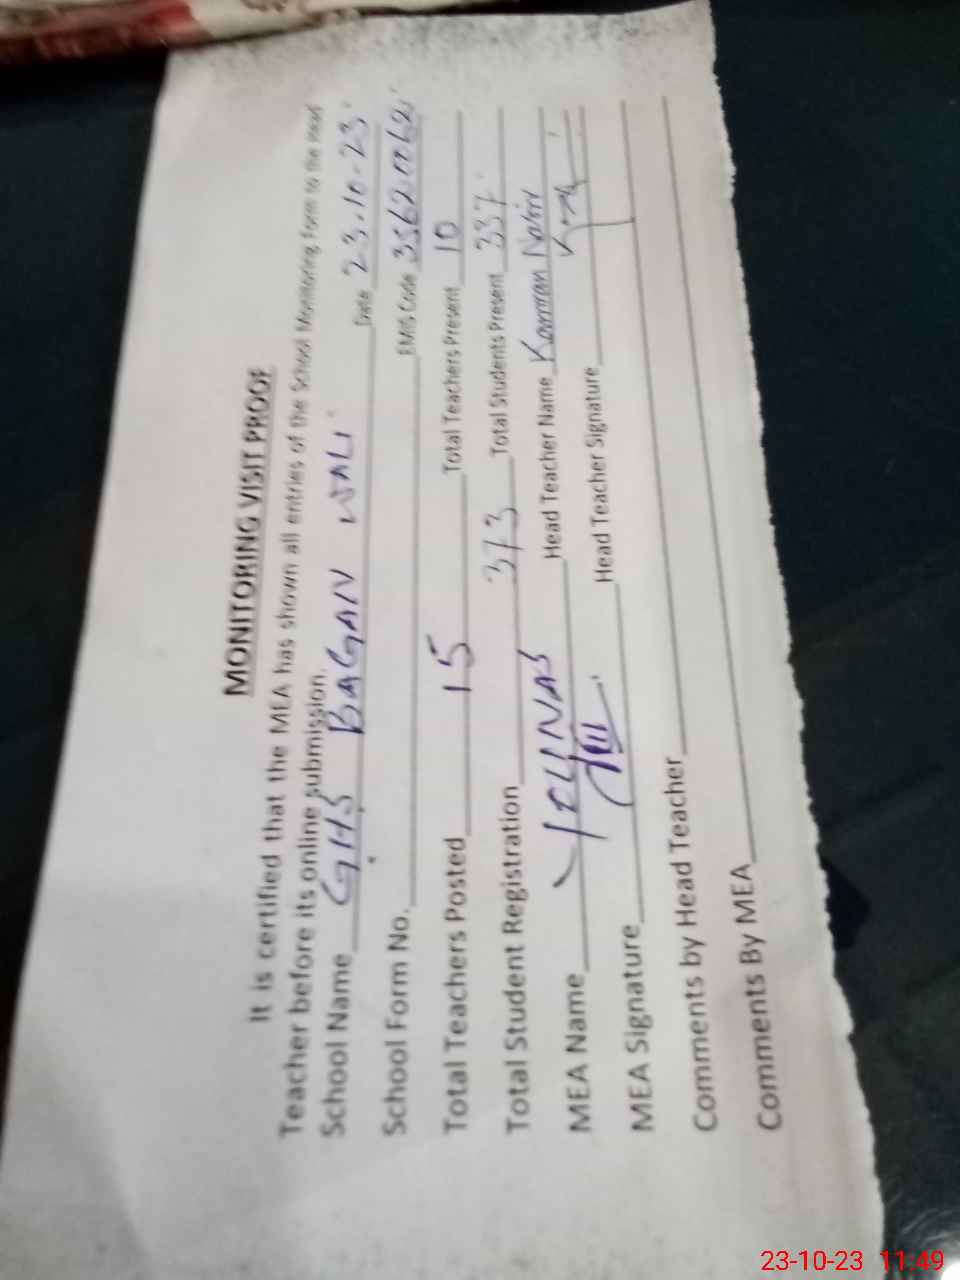 MONITORING VISIT PROOF
It is certified that the MEA has shown all entries of the School Monitoring Form to the Head
Teacher before its online submission.
School Name GHS BAGAN WALI Date 23-10-23
School Form No. EMIS Code 35620062
Total Teachers Posted 15 Total Teachers Present 10
Total Student Registration 373 Total Students Present 337
MEA Name YOUNAS Head Teacher Name Kamran
MEA Signature Head Teacher Signature
Comments by Head Teacher
Comments By MEA
23-10-23 11:49